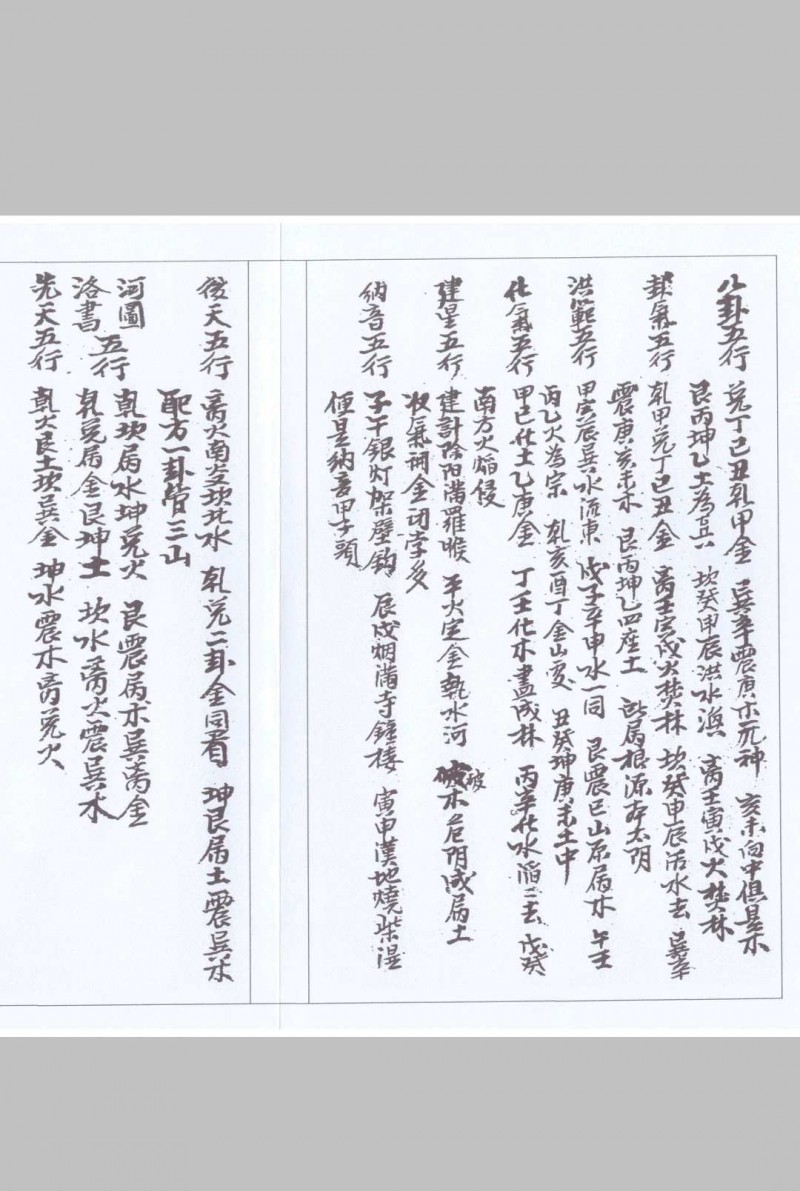 八卦五行　兊丁己丑乹甲金　巽辛震庚木元神　亥未向中俱是木
艮丙坤乙土為真　坎癸甲辰洪水漁　离壬寅戌火焚林
卦氣五行　乹甲兊丁己丑金　离壬寅戌火焚林　坎癸甲辰活水去　巽辛
震庚亥未木　艮丙坤乙四座土　此屬根源夲太阴
洪範五行　甲寅辰巽水流東　戊子辛申水一同　艮震巳山原屬木　午壬
丙乙火為宗　乹亥酉丁金山處　丑癸坤庚未土中
化氣五行　甲己化土乙庚金　丁壬化木盡成林　丙辛化水滔二去　戊癸
南方火焰侵
建星五行　建計除阳滿羅㬋　平火定金執水河　破破木危阴成屬土
收氣開金闭孛多
納音五行　子午銀灯架壁鈎　辰戌烟滿寺鐘楼　寅申漢地燒柴湿
便是納音甲子頭
後天五行　离火南方坎北水　乹兊二卦金同看　坤艮属土震巽木
配方一卦管三山
河圖五行　乹坎属水坤兊火　艮震属木巽离金
洛書五行　乹兊屬金艮坤土　坎水离火震巽木
先天五行　乹火艮土坎巽金　坤水震木离兊火